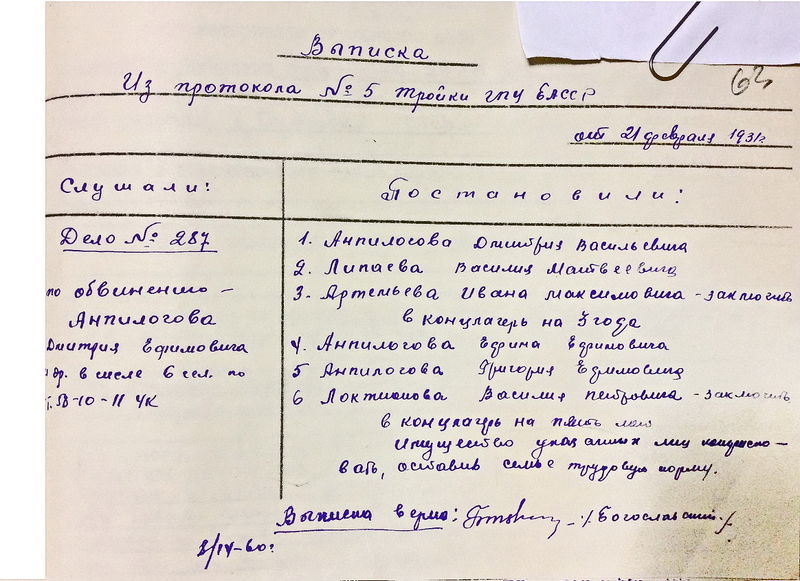 Выписка
Из протокола № 5 тройки ГПУ БАССР
62
от 21 февраля 1931г
Слушали:
Постановили:
Дело № 287
по обвинению –
Анпилогова
Дмитрия Ефимовича
др. в числе 6 чел. по
58-10-11 УК
1. Анпилогова Дмитрия Васильевича
2. Липаева Василия Матвеевича
3. Артемьева Ивана Максимовича - заключить
в концлагерь на 3 года
4. Анпилогова Ефима Ефимовича
5 Анпилогова Григория Ефимовича
6 Локтионова Василия Петровича - заключить
в концлагерь на пять лет
Имущество указанных лиц конфиско-
вать, оставив семье трудовую норму.
Выписка верна: /Богославский/
3/IV-60г